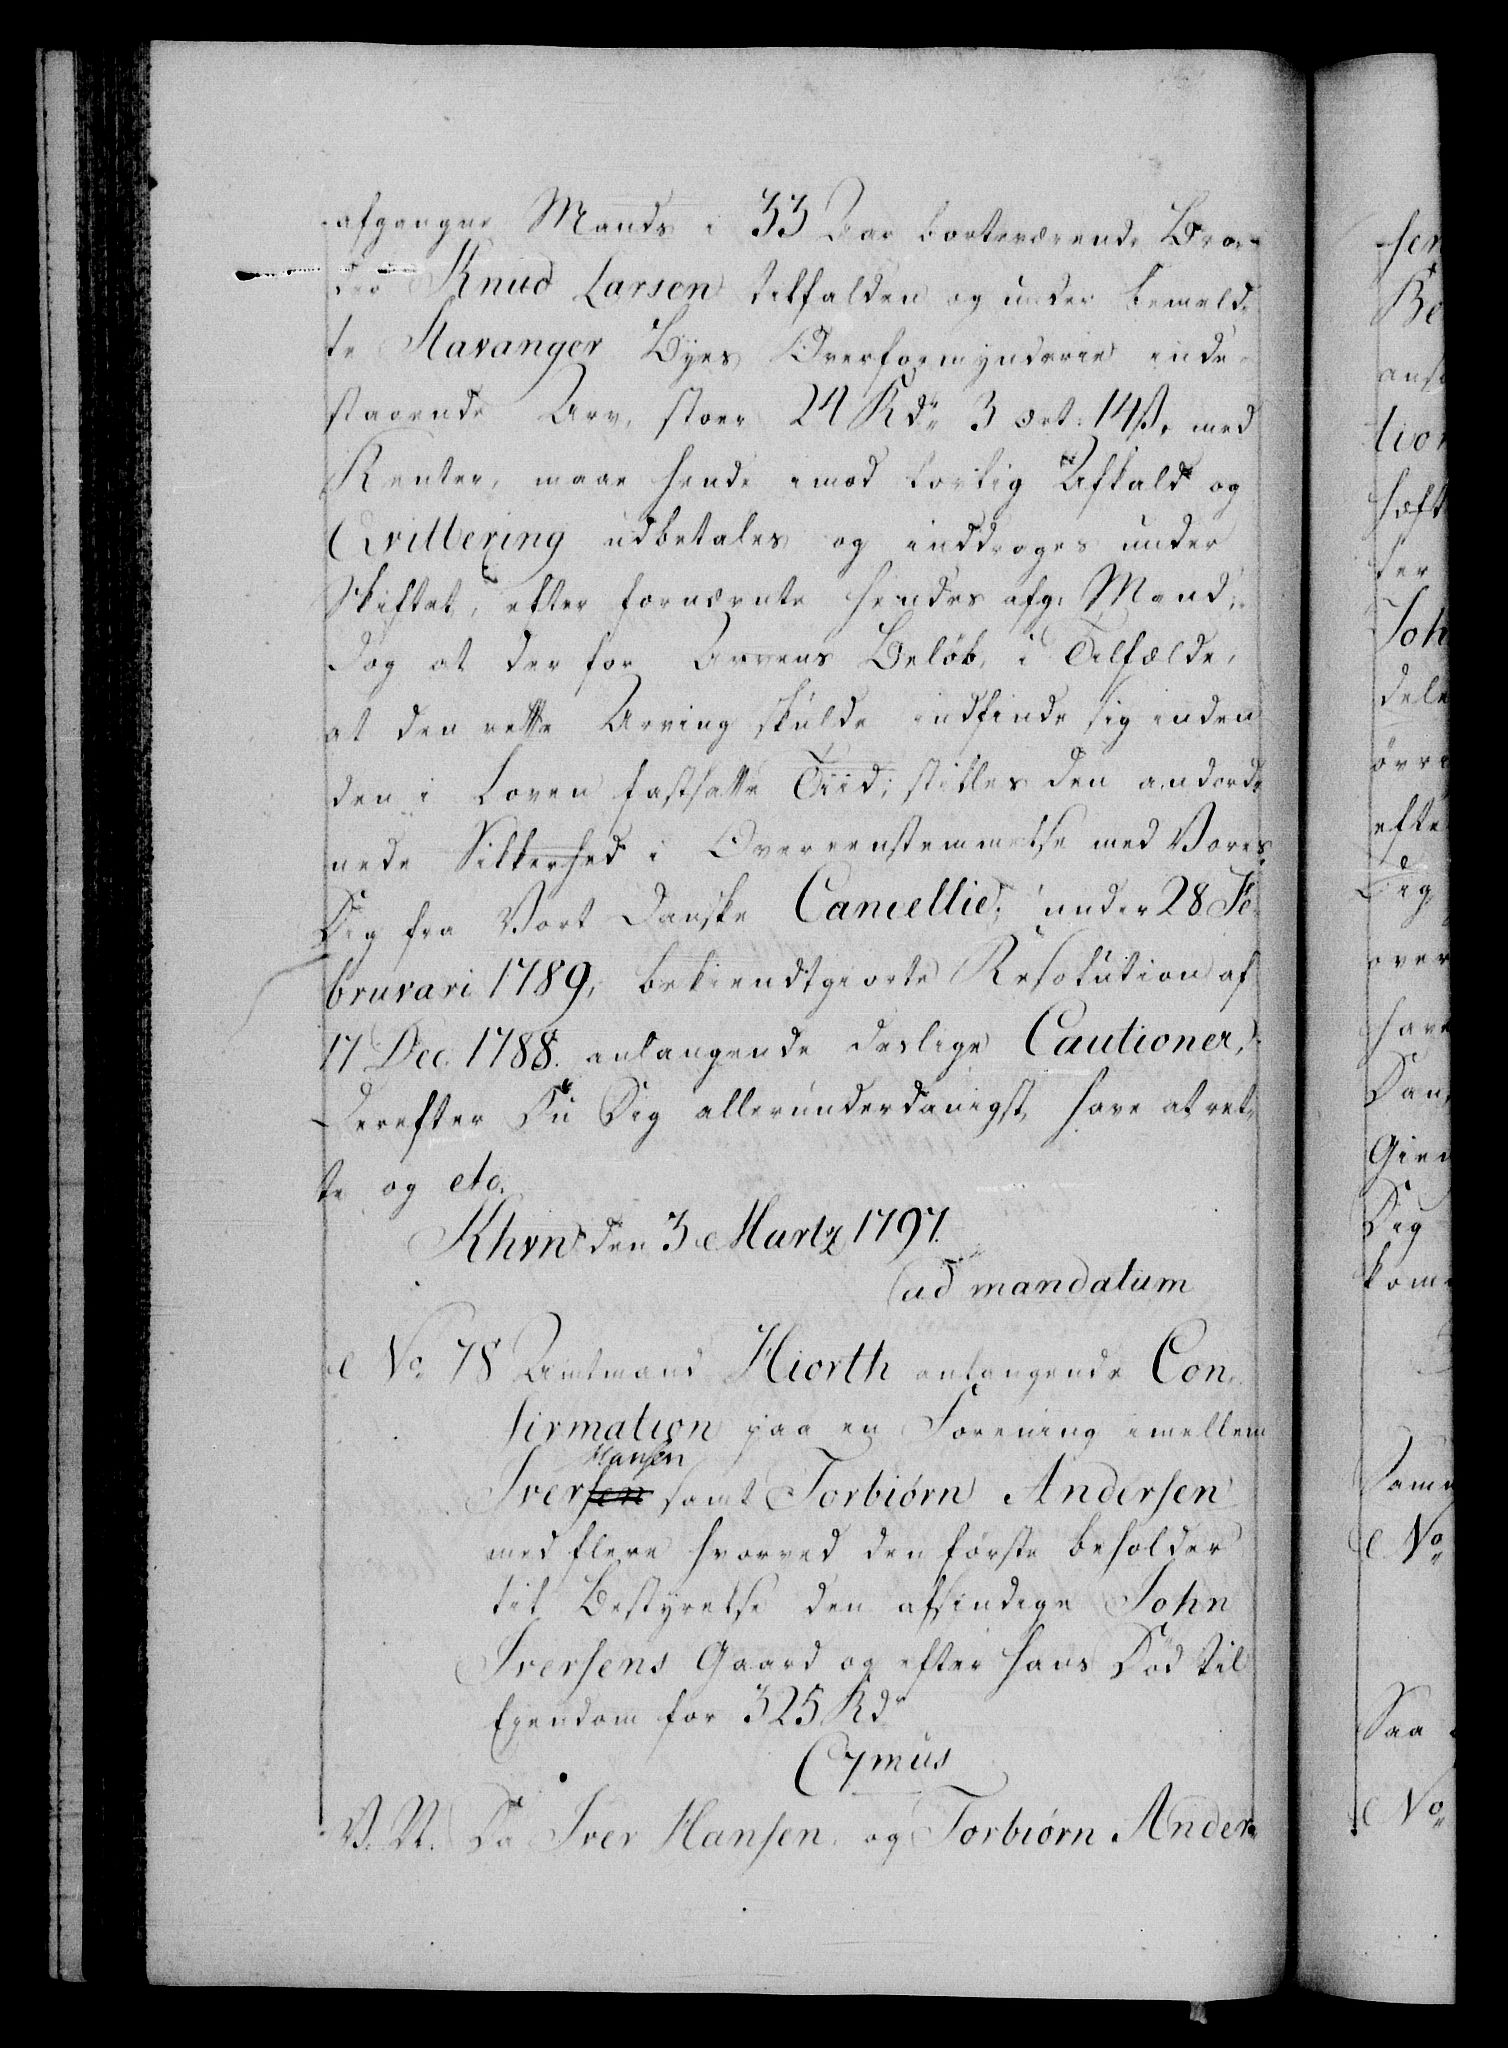 afgangne Mands i 33 Aar borteværende Bro-
der Knud Larsen tilfalden og under bemeld-
te Stavanger Byes Overformynderie inde-
staaende Arv, stoer 24 Rdr 3 ort 14 ß, med
Renter, maae hende imod lovlig Afkald og
Qvittering udbetales og inddrages under
Skiftet, efter fornævnte hendes afg: Mand;
dog at der for Arvens Beløb, i Tilfælde,
at den rette Arving skulde indfinde sig inden
den i Loven fastsatte Tiid; stilles den anord-
nede Sikkerhed i Overeenstemmelse med Vores
Dig fra Vort Danske Cancellie, under 28 Fe-
bruvari 1789, bekiendtgiorte Resolution af
17 Dec. 1788. anlangende deslige Cautioner,
Derefter Du Dig allerunderdanigst have at ret-
te og etc.
Khvn den 3 Martz 1797.
ad mandatum
No 78 Amtmand Hiorth anlangende Con-
firmation paa en Forening imellem
Hansen
Iversen samt Torbiørn Andersen
med flere hvorved den første beholder
til Bestyrelse den afsindige John
Iversens Gaard og efter hans Død til
Ejendom for 325 Rdr
C7mus
V. N. Da Iver Hansen og Torbiørn Ander-